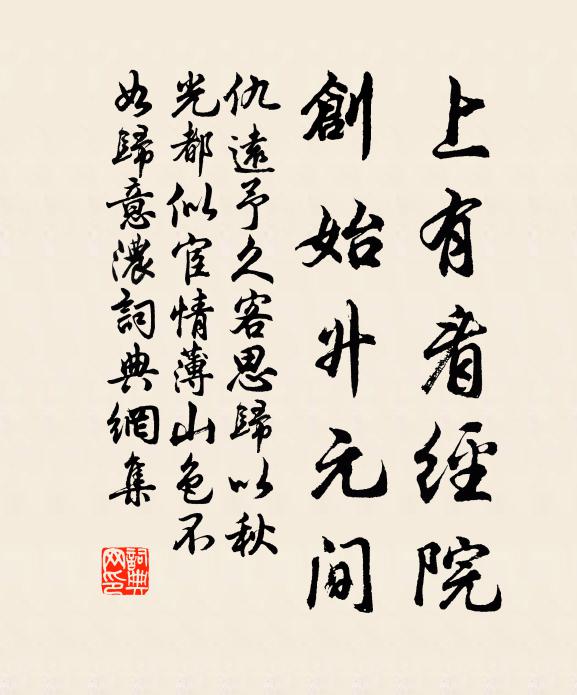 上有看經院
創始升元間
仇遠予久客思歸以秋
光都似宦情薄山色不
如歸意濃詞典網集
詞典網印